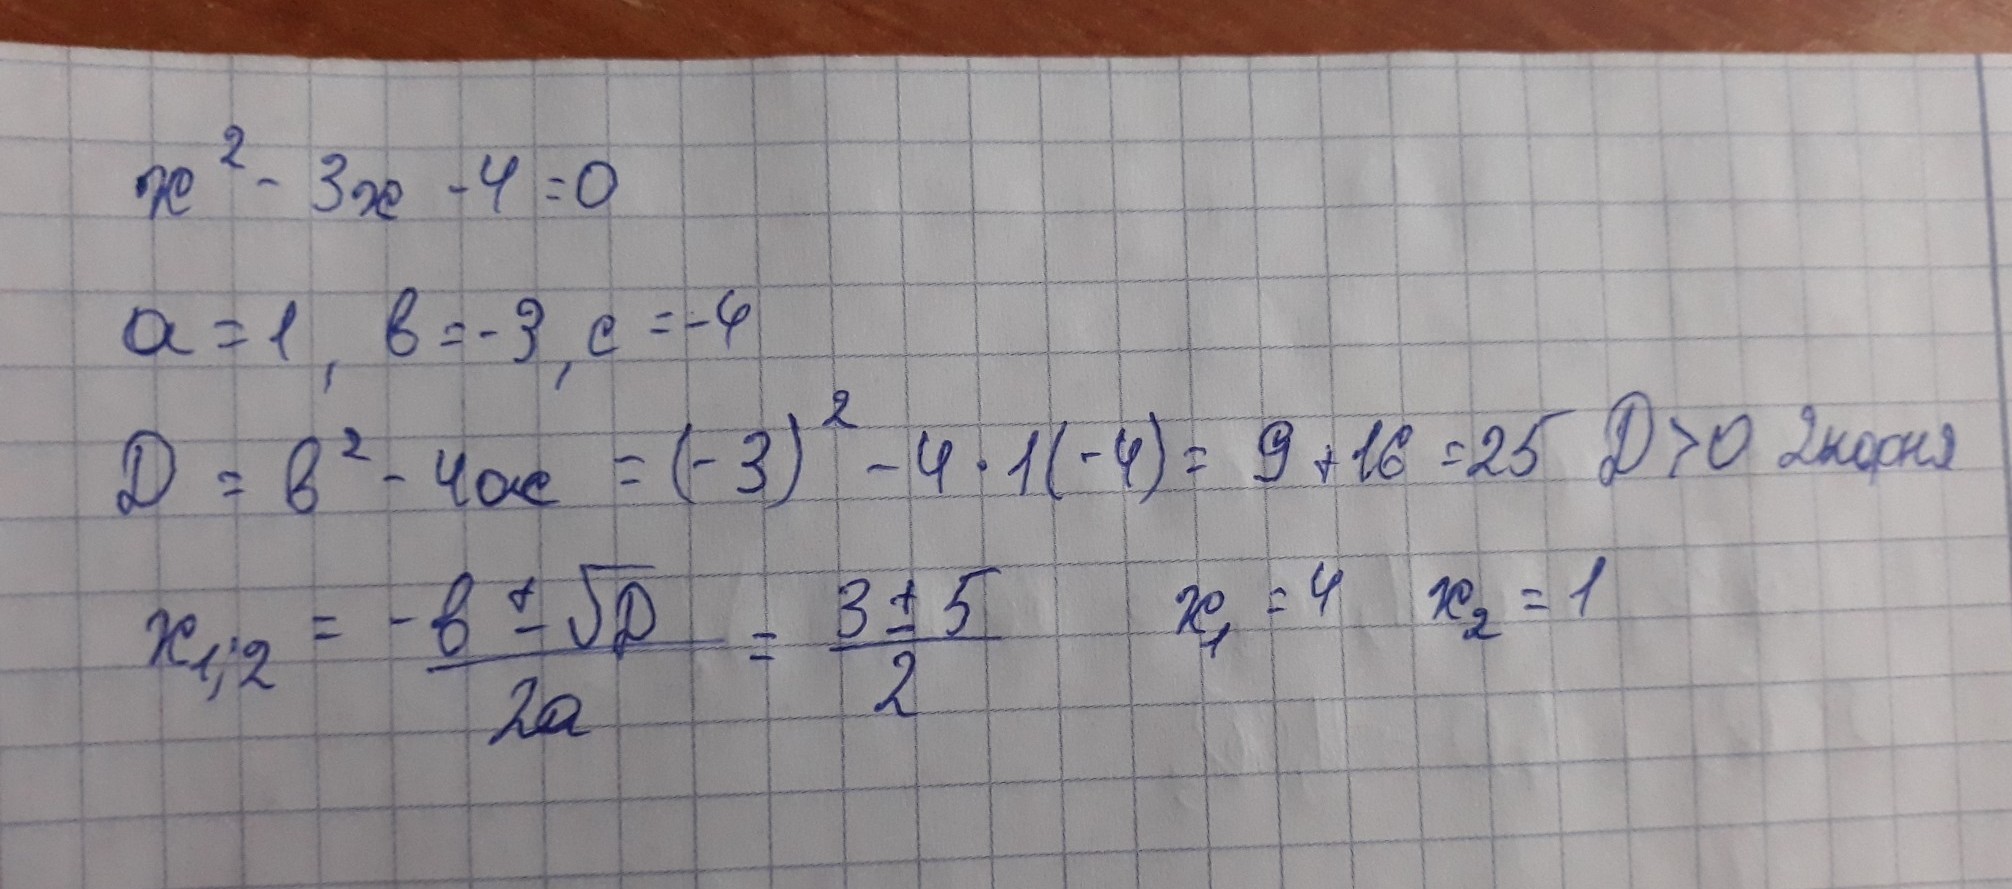 x² - 3x - 4 = 0
a = 1, b = -3, c = -4
D = b² - 4ac = (-3)² - 4 · 1(-4) = 9 + 16 = 25 D > 0 2 корня
x₁;₂ = (-b ± √D) / 2a = (3 ± 5) / 2 x₁ = 4 x₂ = 1